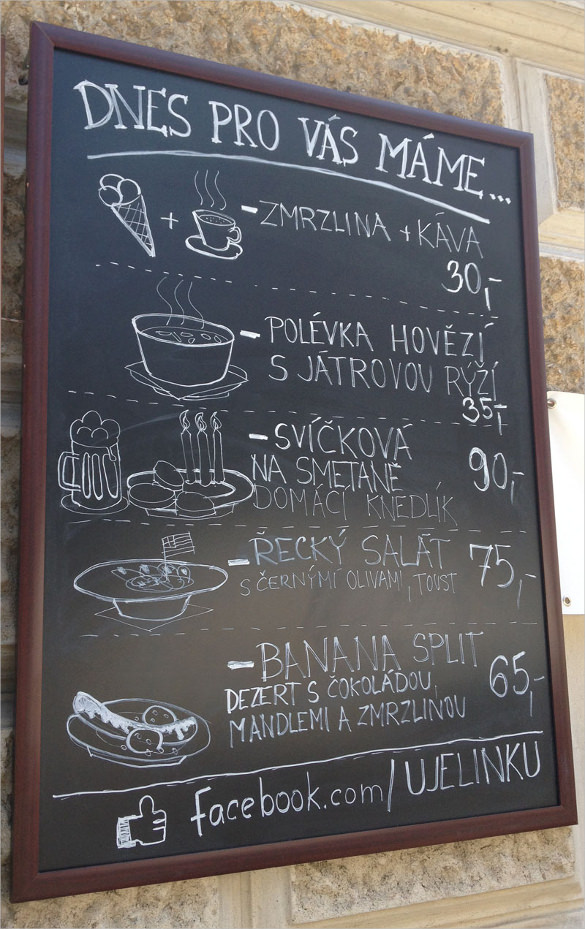 DNES PRO VÁS MÁME...
+ - ZMRZLINA + KÁVA
30,-
- POLÉVKA HOVĚZÍ
S JÁTROVOU RÝŽÍ
35,-
- SVÍČKOVÁ
NA SMETANĚ 90,-
DOMÁCÍ KNEDLÍK
- ŘECKÝ SALÁT 75,-
S ČERNÝMI OLIVAMI, TOUST
- BANANA SPLIT
DEZERT S ČOKOLÁDOU, 65,-
MANDLEMI A ZMRZLINOU
facebook.com/UJELINKU